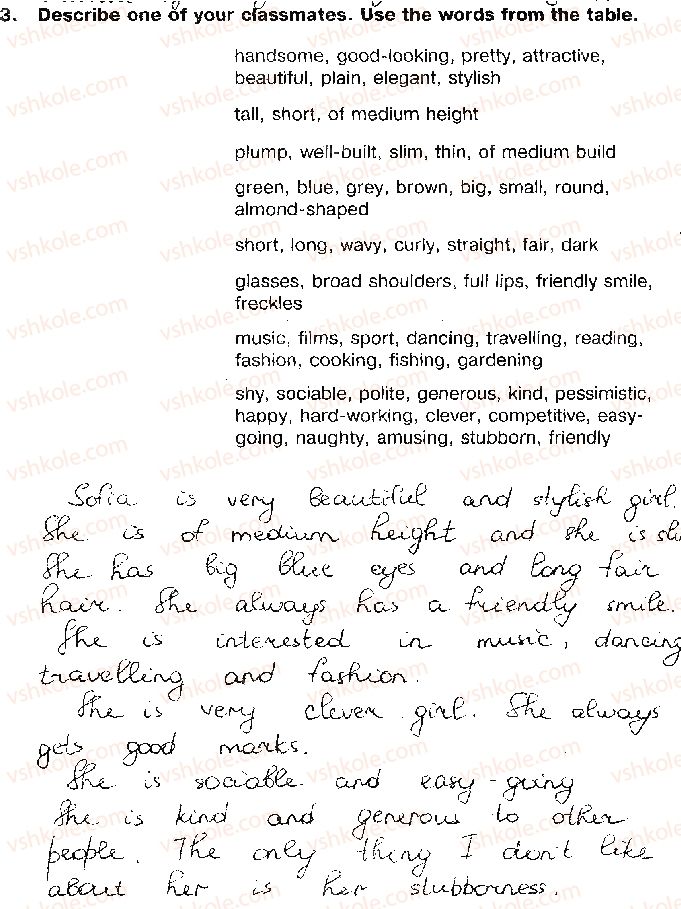 3. Describe one of your classmates. Use the words from the table.
handsome, good-looking, pretty, attractive,
beautiful, plain, elegant, stylish
tall, short, of medium height
plump, well-built, slim, thin, of medium build
green, blue, grey, brown, big, small, round,
almond-shaped
short, long, wavy, curly, straight, fair, dark
glasses, broad shoulders, full lips, friendly smile,
freckles
music, films, sport, dancing, travelling, reading,
fashion, cooking, fishing, gardening
shy, sociable, polite, generous, kind, pessimistic,
happy, hard-working, clever, competitive, easy-
going, naughty, amusing, stubborn, friendly
Sofia is very beautiful and stylish girl.
She is of medium height and she is sli
She has big blue eyes and long fair
hair. She always has a friendly smile.
She is interested in music, dancing
travelling and fashion.
She is very clever girl. She always
gets good marks.
She is sociable and easy-going
She is kind and generous to other
people. The only thing I don't like
about her is her stubborness.